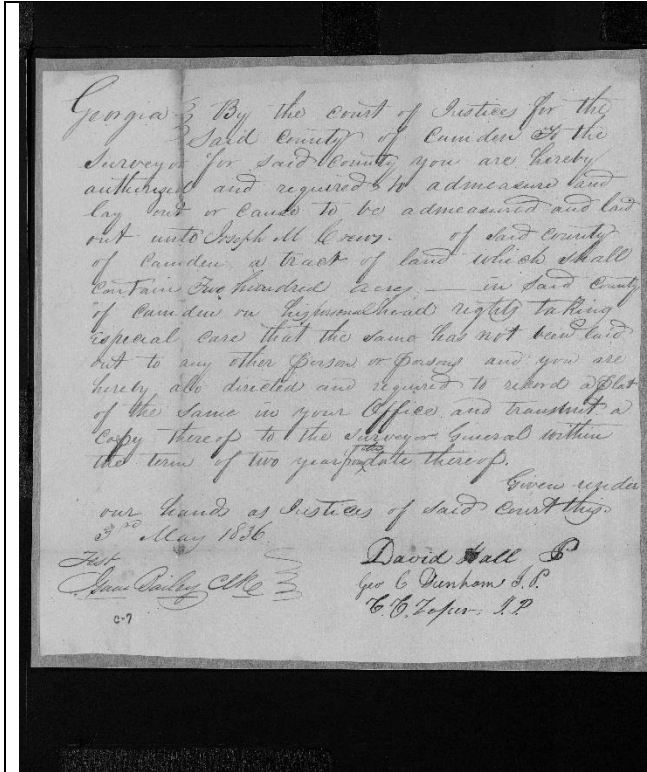 Georgia } By the court of Justices for the
Said County of Camden To the
Surveyor for Said County you are hereby
authorised and required to admeasure and
lay out or cause to be admeasured and laid
out unto Joseph M Crews. of said County
of Camden a tract of land which shall
contain Five hundred acres — in said County
of Camden on his head rights taking
especial care that the same has not been laid
out to any other person or persons and you are
hereby also directed and required to record a Plat
of the same in your Office and transmit a
Copy thereof to the Surveyor General within
the term of two year from the date thereof.
Given under
our hands as Justices of said Court this
3rd May 1836
Test
Isaac Bailey Clk
David Hall
Geo C Dunham J.P.
J.P
C-7